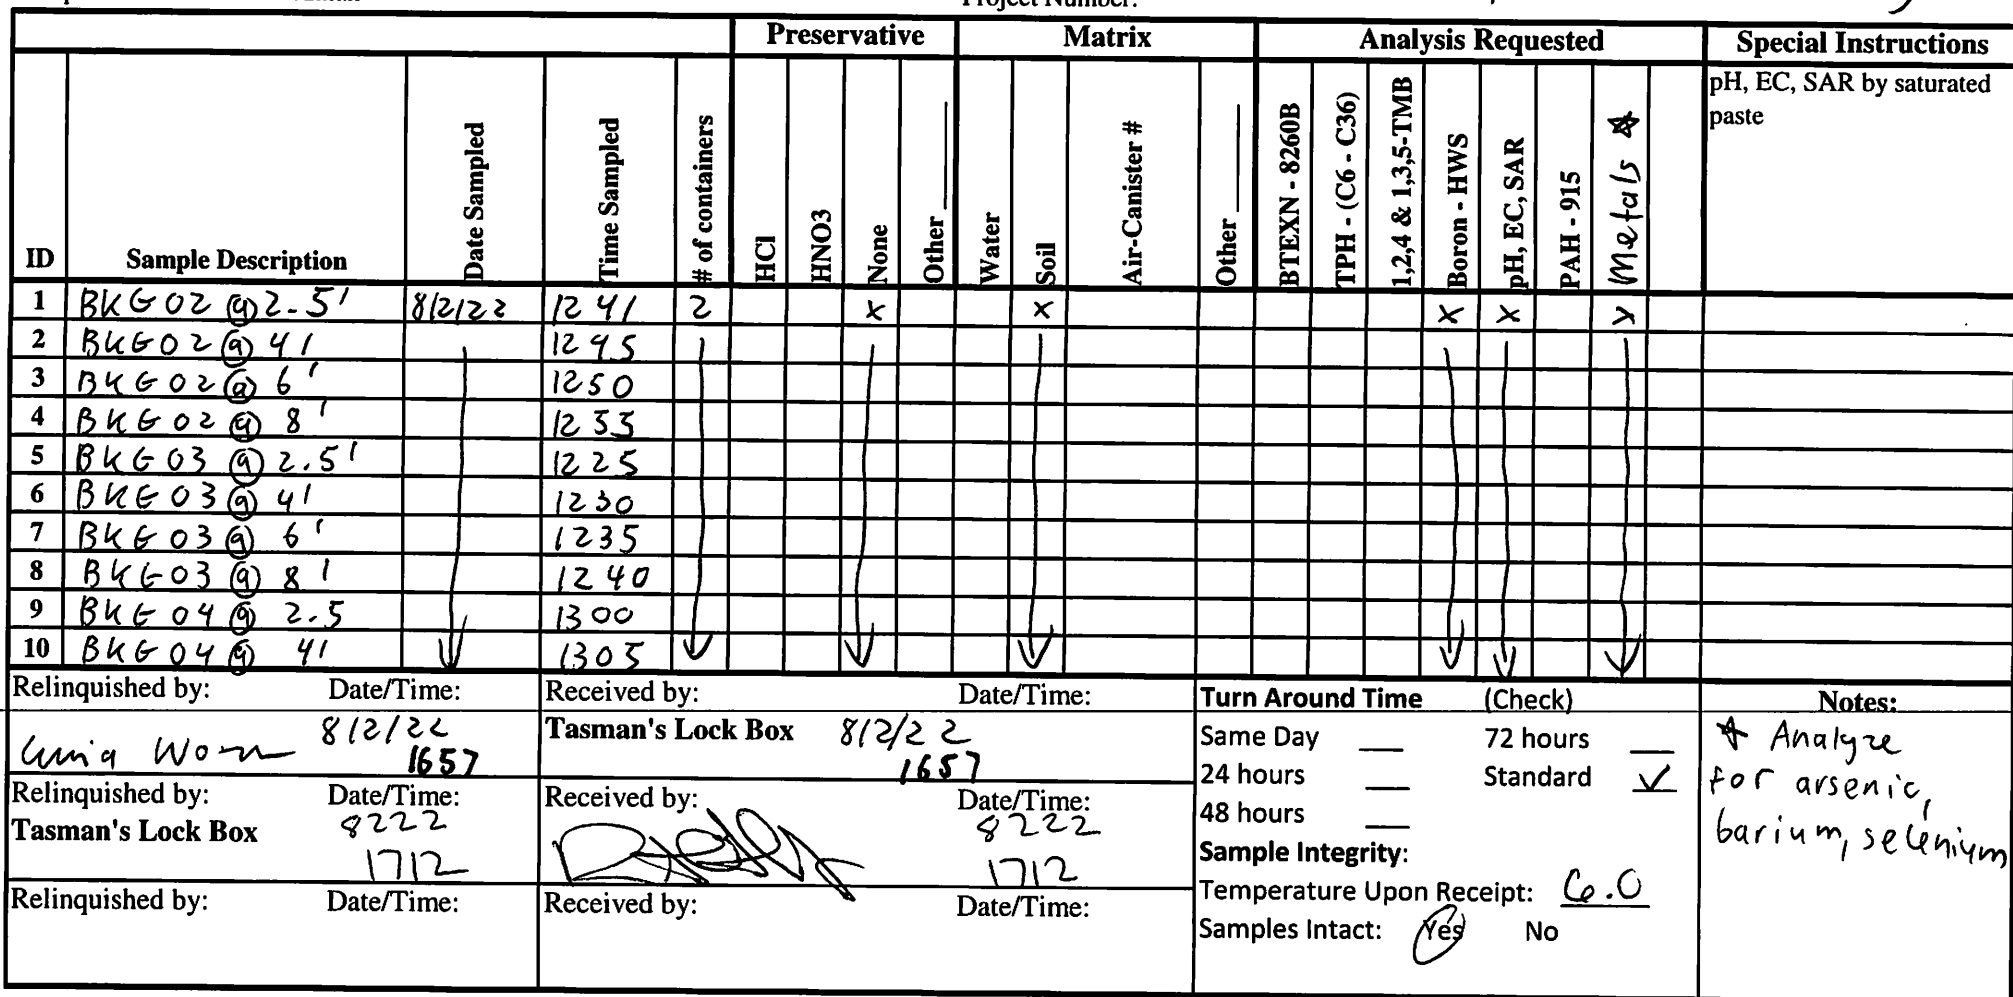 Project Number:
Preservative Matrix Analysis Requested Special Instructions
ID Sample Description Date Sampled Time Sampled # of containers HCl HNO3 None Other ____ Water Soil Air-Canister # Other ____ BTEXN - 8260B TPH - (C6 - C36) 1,2,4 & 1,3,5-TMB Boron - HWS pH, EC, SAR PAH - 915 Metals ☆
pH, EC, SAR by saturated
paste
1 BKG02 @ 2.5' 8/2/22 1241 2 x x x x x
2 BKG02 @ 4' 1245
3 BKG02 @ 6' 1250
4 BKG02 @ 8' 1255
5 BKG03 @ 2.5' 1225
6 BKG03 @ 4' 1230
7 BKG03 @ 6' 1235
8 BKG03 @ 8' 1240
9 BKG04 @ 2.5 1300
10 BKG04 @ 4' 1305
Relinquished by: Date/Time: Received by: Date/Time:
8/2/22 Tasman's Lock Box 8/2/22
1657 1657
Relinquished by: Date/Time: Received by: Date/Time:
Tasman's Lock Box 8222 8222
1712 1712
Relinquished by: Date/Time: Received by: Date/Time:
Turn Around Time (Check)
Same Day ___ 72 hours ___
24 hours ___ Standard ✓
48 hours ___
Sample Integrity:
Temperature Upon Receipt: 6.0
Samples Intact: Yes No
Notes:
☆ Analyze
for arsenic,
barium, selenium